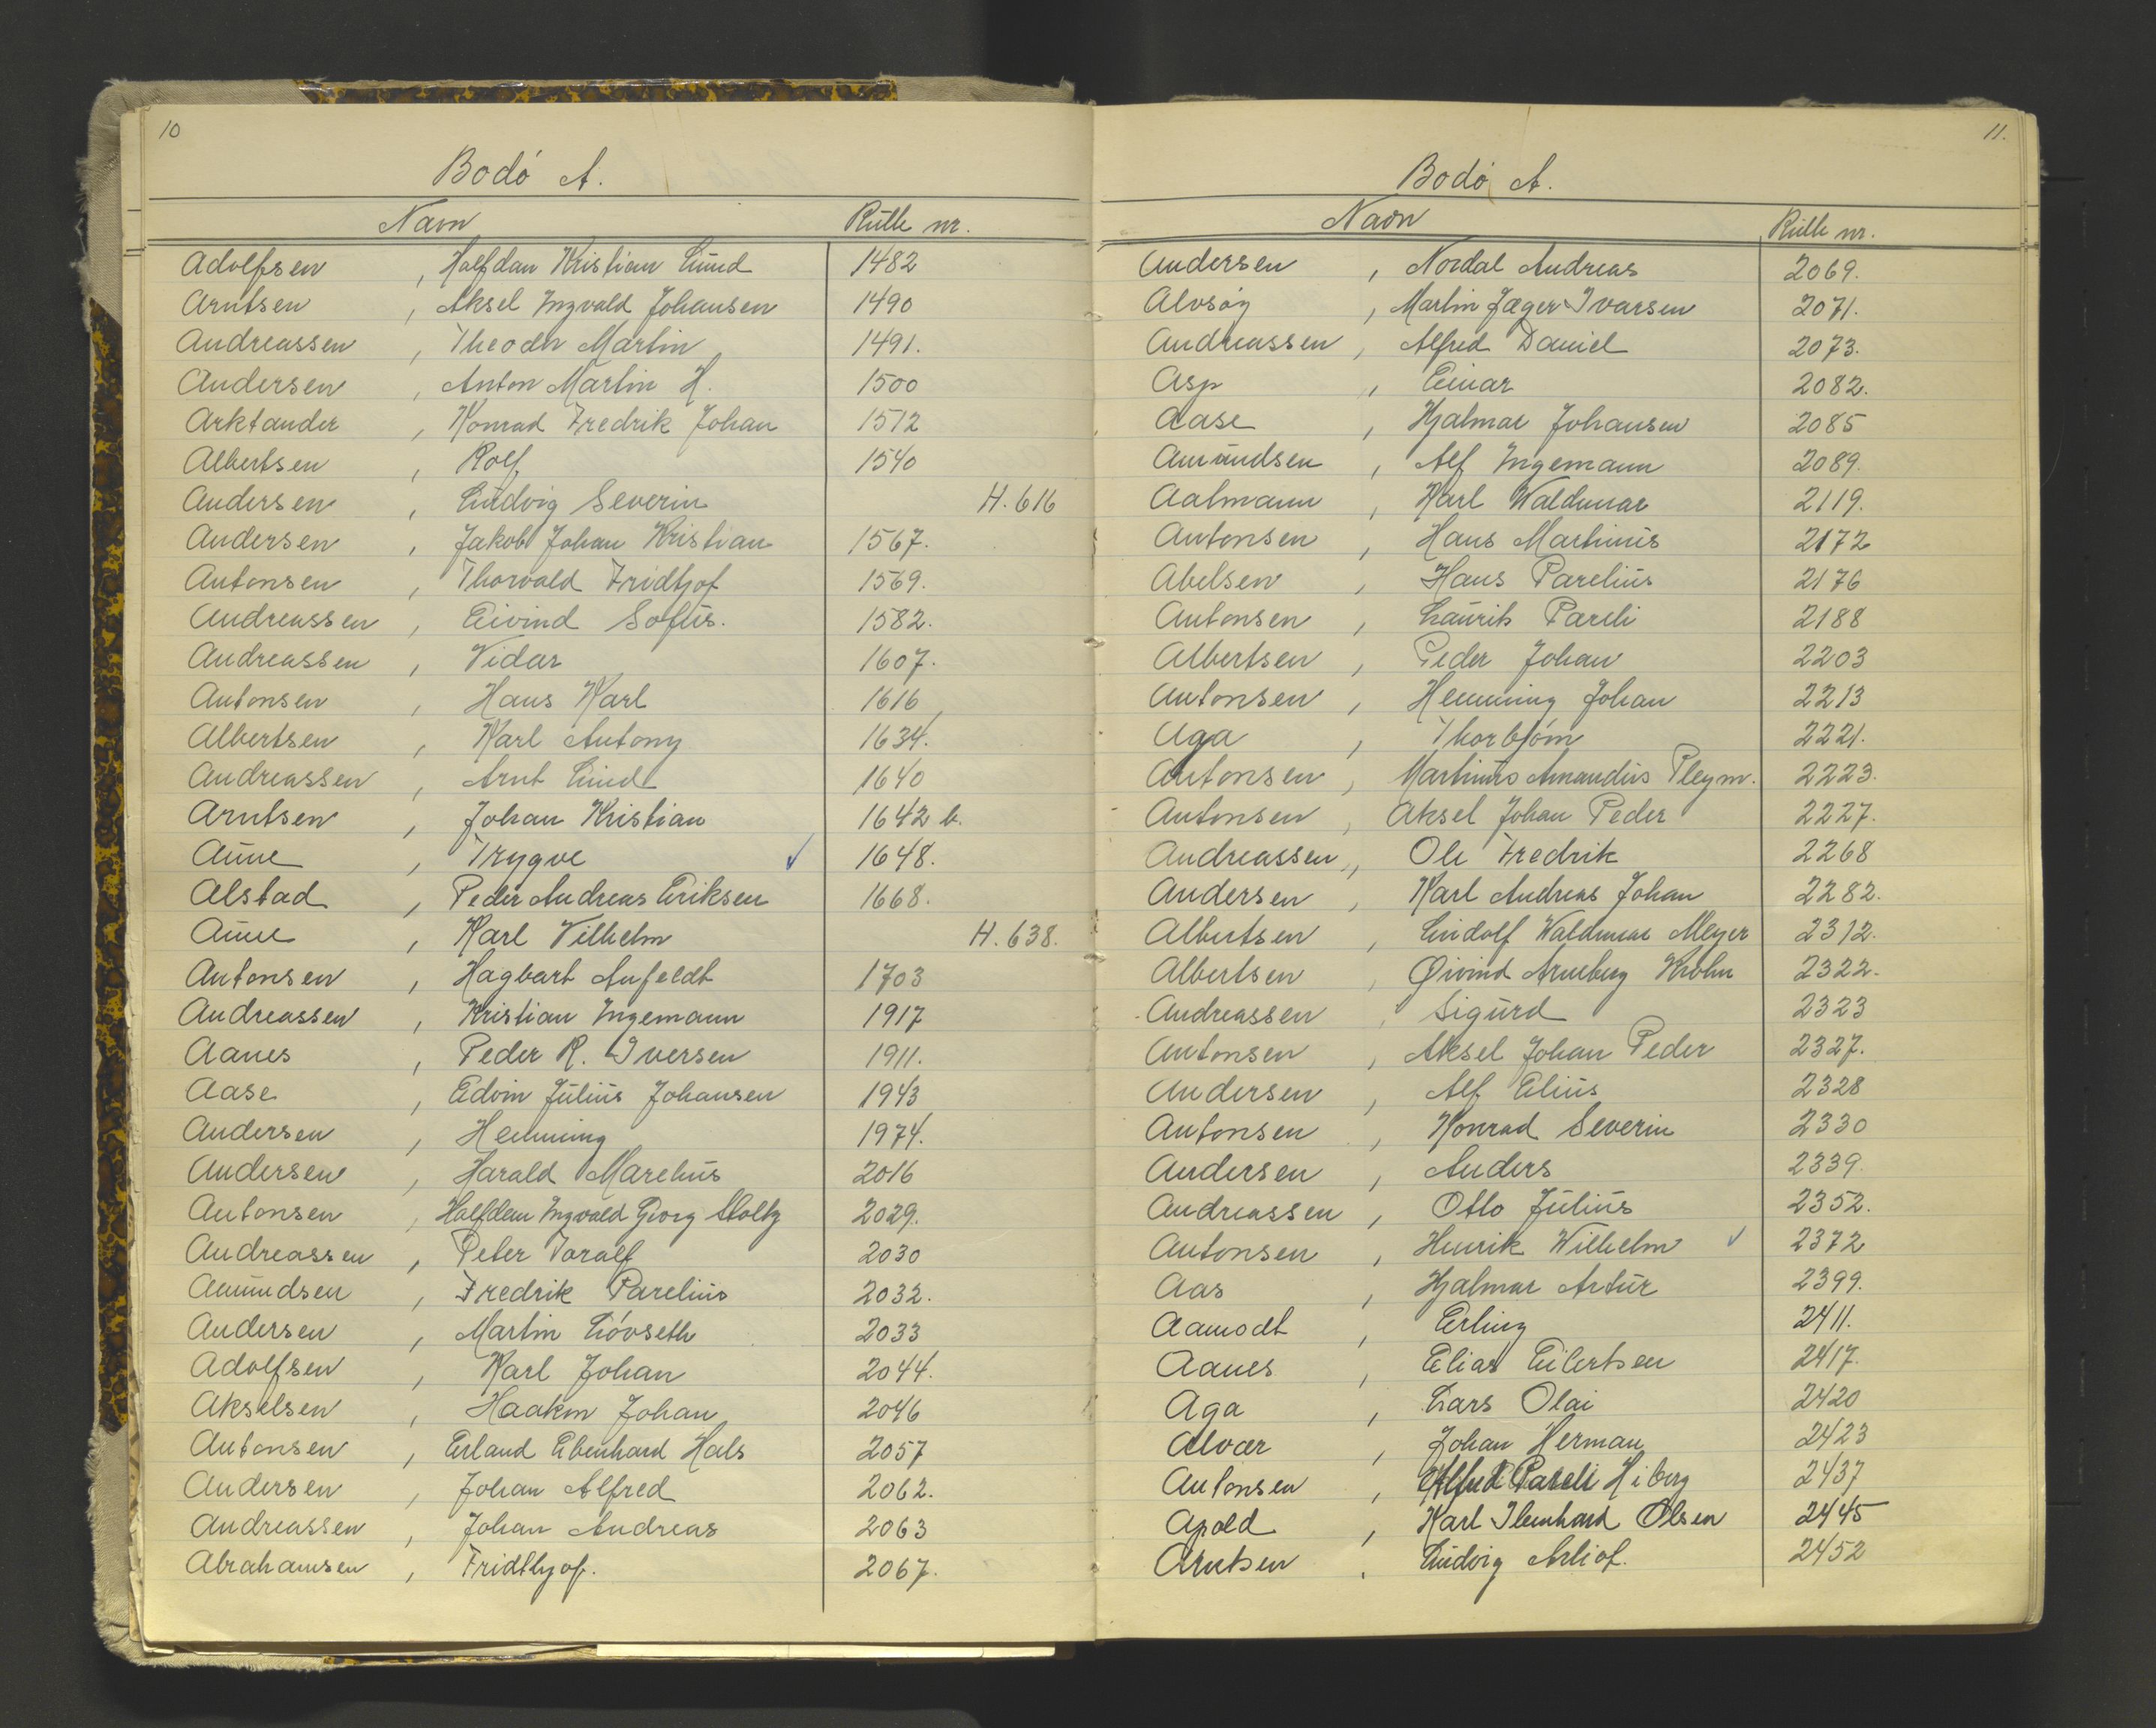 10
Bodó A.
Navn Rulle nr.
Adolfsen , Halfdan Kristian Lund 1482
Arntsen , Aksel Ingvald Johansen 1490
Andreassen , Theodor Martin 1491.
Andersen , Anton Martin H. 1500
Arktander , Konrad Fredrik Johan 1512
Albertsen , Rolf 1540
Andersen , Ludvig Severin H. 616
Andersen , Jakob Johan Kristian 1567.
Antonsen , Thorvald Fridtjof 1569.
Andreassen , Eivind Sofus. 1582.
Andreassen , Vidar 1607.
Antonsen , Hans Karl 1616
Albertsen , Karl Antony 1634.
Andreassen , Arnt Lind 1640
Arntsen , Johan Kristian 1642 b.
Aune , Trygve ✓ 1648.
Alstad , Peder Andreas Eriksen 1668.
Aune , Karl Vilhelm H. 638.
Antonsen , Hagbart Anfeldt 1703
Andreassen , Kristian Ingemann 1917
Aanes , Peder R. Iversen 1911.
Aase , Edvin Julius Johansen 1943
Andersen , Henning 1974.
Andersen , Harald Marelius 2016
Antonsen , Halfdan Ingvald Georg Stoltz 2029.
Andreassen , Peter Toralf 2030
Amundsen , Fredrik Parelius 2032.
Andersen , Martin Lóvseth 2033
Adolfsen , Karl Johan 2044.
Akselsen , Haakon Johan 2046
Antonsen , Erland Edenhard Hals 2057
Andersen , Johan Alfred 2062.
Andreassen , Johan Andreas 2063
Abrahamsen , Fridthjof. 2067.
11.
Bodó A.
Navn Rulle nr.
Andersen , Nordal Andreas 2069.
Alvsóy , Martin Jæger Ivarsen 2071.
Andreassen , Alfred Daniel 2073.
Asp , Einar 2082.
Aase , Hjalmar Johansen 2085
Amundsen , Alf Ingemann 2089.
Aalmann , Karl Waldemar 2119.
Antonsen , Hans Martinus 2172
Abelsen , Hans Parelius 2176
Antonsen , Laurits Pareli 2188
Albertsen , Peder Johan 2203
Antonsen , Henning Johan 2213
Aga , Thorbjórn 2221.
Antonsen , Martinus Amandus Pleym. 2223.
Antonsen , Aksel Johan Peder 2227.
Andreassen , Ole Fredrik 2268
Andersen , Karl Andreas Johan 2282.
Albertsen , Lindolf Waldemar Meyer 2312.
Albertsen , Øivind Arneberg Krohn 2322.
Andreassen , Sigurd 2323
Antonsen , Aksel Johan Peder 2327.
Andersen , Alf Elius 2328
Antonsen , Konrad Severin 2330
Andersen , Anders 2339.
Andreassen , Otto Julius 2352.
Antonsen , Henrik Wilhelm ✓ 2372
Aas , Hjalmar Artur 2399.
Aamodt , Erling 2411.
Aanes , Elias Eilertsen 2417.
Aga , Lars Olai 2420
Alvær , Johan Herman 2423
Antonsen , Alfred Pareli Hiberg 2437
Apold , Karl Olsen 2445
Arntsen , Ludvig 2452